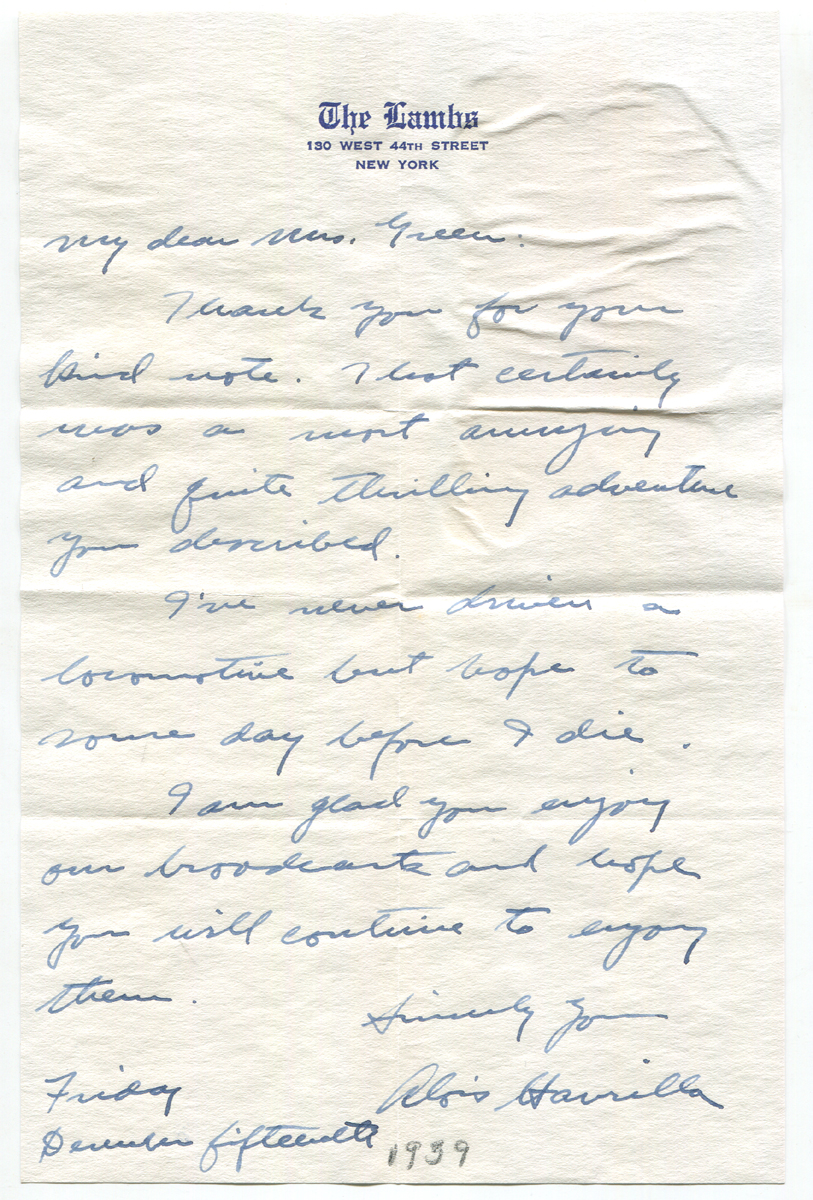 The Lambs
130 WEST 44TH STREET
NEW YORK
My dear Mrs. Green:
Thank you for your
kind note. That certainly
was a most annoying
and quite thrilling adventure
you described.
I've never driven a
locomotive but hope to
some day before I die.
I am glad you enjoy
our broadcasts and hope
you will continue to enjoy
them.
Sincerely Yours
Alois Havrilla
Friday
December fifteenth
1939